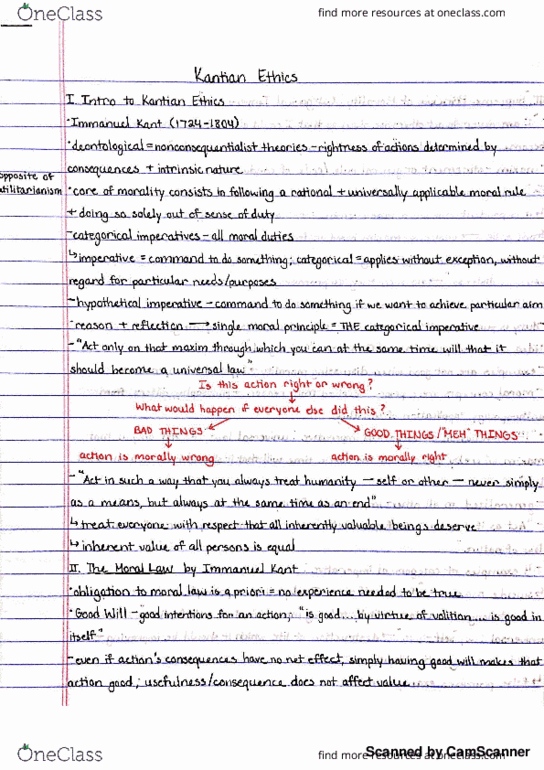 OneClass
find more resources at oneclass.com
Kantian Ethics
I. Intro to Kantian Ethics
·Immanuel Kant (1724-1804)
·deontological = nonconsequentialist theories - rightness of actions determined by
consequences + intrinsic nature
opposite of
utilitarianism
·core of morality consists in following a rational + universally applicable moral rule
+ doing so solely out of sense of duty
-categorical imperatives - all moral duties
↳imperative = command to do something; categorical = applies without exception, without
regard for particular needs/purposes
-hypothetical imperative - command to do something if we want to achieve particular aim
·reason + reflection → single moral principle = THE categorical imperative
-"Act only on that maxim through which you can at the same time will that it
should become a universal law"
Is this action right or wrong?
↓
What would happen if everyone else did this?
BAD THINGS
GOOD THINGS/"MEH" THINGS
action is morally wrong
action is morally right
-"Act in such a way that you always treat humanity - self or other - never simply
as a means, but always at the same time as an end"
↳ treat everyone with respect that all inherently valuable beings deserve
↳ inherent value of all persons is equal
II. The Moral Law by Immanuel Kant
·obligation to moral law is a priori = no experience needed to be true
·Good Will - good intentions for an action; "is good... by virtue of volition... is good in
itself"
-even if action's consequences have no net effect, simply having good will makes that
action good; usefulness/consequence does not affect value
OneClass
find more resources at oneclass.com
Scanned by CamScanner